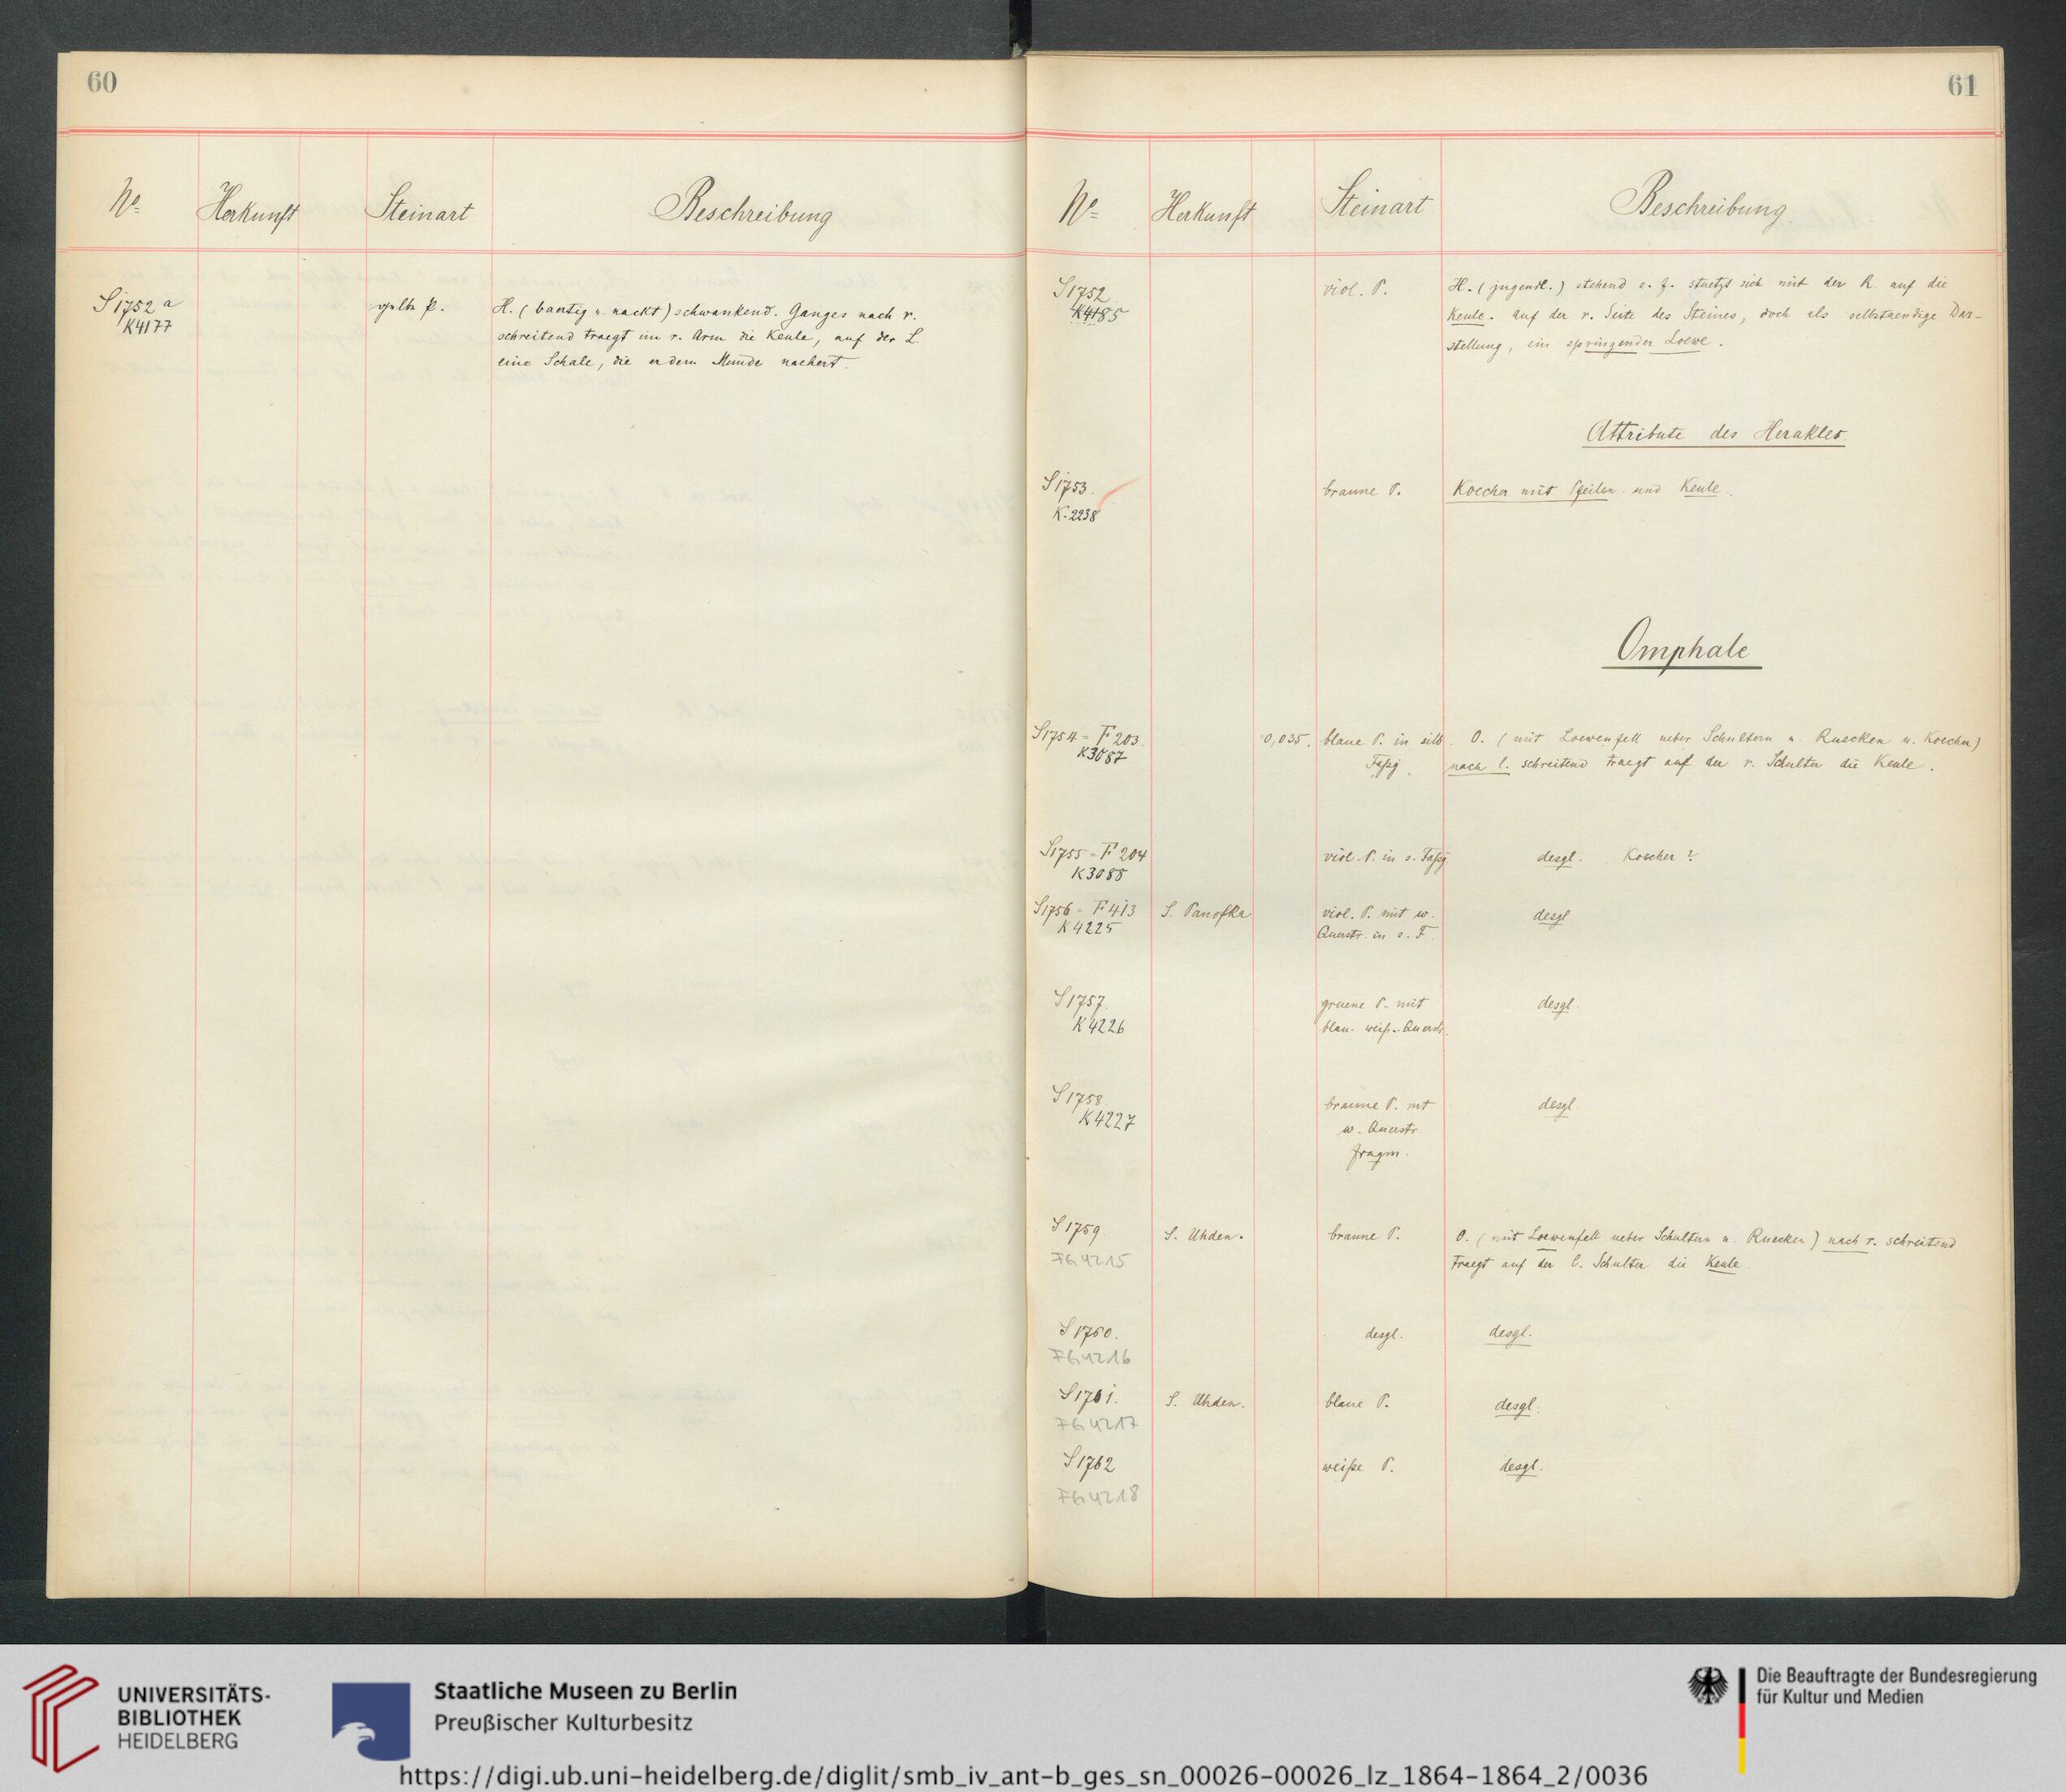 60
No Herkunft Steinart Beschreibung
S 1752 a
K4177
gelbe P.
H. (baertig u. nackt) schwankend. Ganges nach r.
schreitend traegt im r. Arm die Keule, auf der L.
eine Schale, die er dem Munde naehert.
61
No Herkunft Steinart Beschreibung
S 1752
K4185
viol. P.
H. (jugendl.) stehend e. f. stuetzt sich mit der R. auf die
Keule. auf der r. Seite des Steines, doch als selbstaendige Dar-
stellung, ein springender Loewe.
Attribute des Herakles.
S 1753.
K. 2238
braune P.
Koecher mit Pfeilen und Keule.
Omphale
S 1754 = F 203
K3087
0,035.
blaue P. in silb.
Faßg.
O. (mit Loewenfell ueber Schultern u. Ruecken u. Koecher)
nach l. schreitend traegt auf der r. Schulter die Keule.
S 1755 = F 204
K3088
viol. P. in s. Faßg.
desgl. Koecher?
S 1756 = F 413
K4225
S. Panofka
viol. P. mit w.
Querstr. in s. F.
desgl.
S 1757
K4226
gruene P. mit
blau. weiß. Querstr.
desgl.
S 1758
K4227
braune P. mt
w. Querstr.
fragm.
desgl
S 1759
FG 4215
S. Uhden.
braune P.
O. (mit Loewenfell ueber Schultern u. Ruecken) nach r. schreitend
traegt auf der l. Schulter die Keule
S 1760.
FG 4216
desgl.
desgl.
S 1761.
FG 4217
S. Uhden.
blaue P.
desgl.
S 1762
FG 4218
weiße P.
desgl.
UNIVERSITÄTS-
BIBLIOTHEK
HEIDELBERG
Staatliche Museen zu Berlin
Preußischer Kulturbesitz
Die Beauftragte der Bundesregierung
für Kultur und Medien
https://digi.ub.uni-heidelberg.de/diglit/smb_iv_ant-b_ges_sn_00026-00026_lz_1864-1864_2/0036